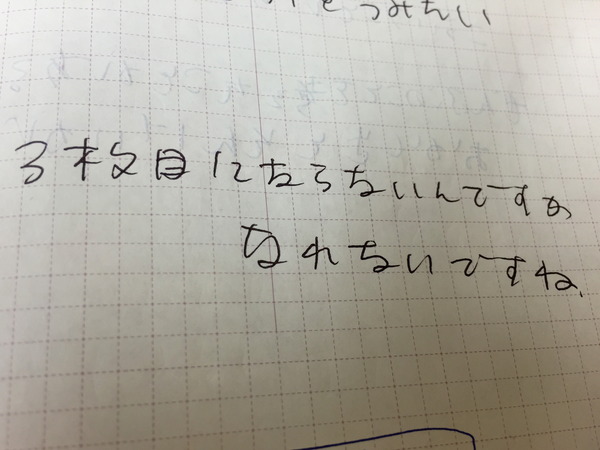 とつみたい
3枚目にならないんですか
なれないですね.